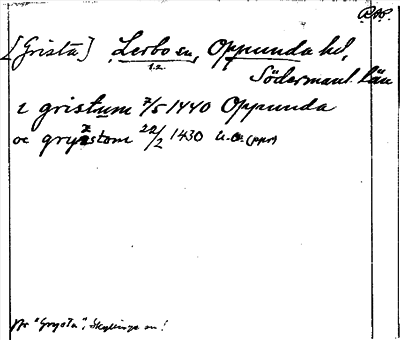 [Grista] Lerbo sn, Oppunda hd,
12.
Södermanl. Län
i gristum 7/5 1440 Oppunda
oc gryzstom 22/2 1430 U. O. (ppr)
"Grysta", Skyllinge sn!